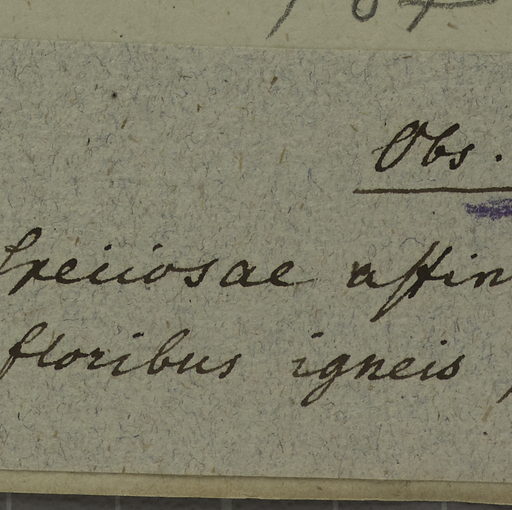 Obs.
Speciosae affin
floribus igneis